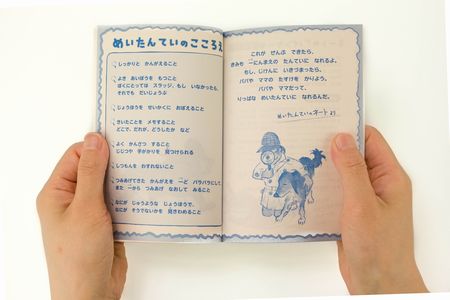 めいたんていのこころえ
しっかりと かんがえること
よき あいぼうを もつこと
ぼくにとっては スラッジ、もし いなかったら、
それでも だいじょうぶ
じょうほうを せいかくに おぼえること
きいたことを メモすること
どこで、だれが、どうしたか など
よく かんさつ すること
じじつや 手がかりを 見つけられる
しつもんを わすれないこと
つみあげてきた かんがえを 一ど バラバラにして
また 一から つみあげ なおして みること
なにが じゅうような じょうほうで、
なにが そうでないかを 見きわめること
これが ぜんぶ できたら、
きみも 一にんまえの たんていに なれるよ。
もし、じけんに いきづまったら、
パパや ママの たすけを かりよう。
パパや ママだって、
りっぱな めいたんていに なれるんだ。
めいたんていのネートより